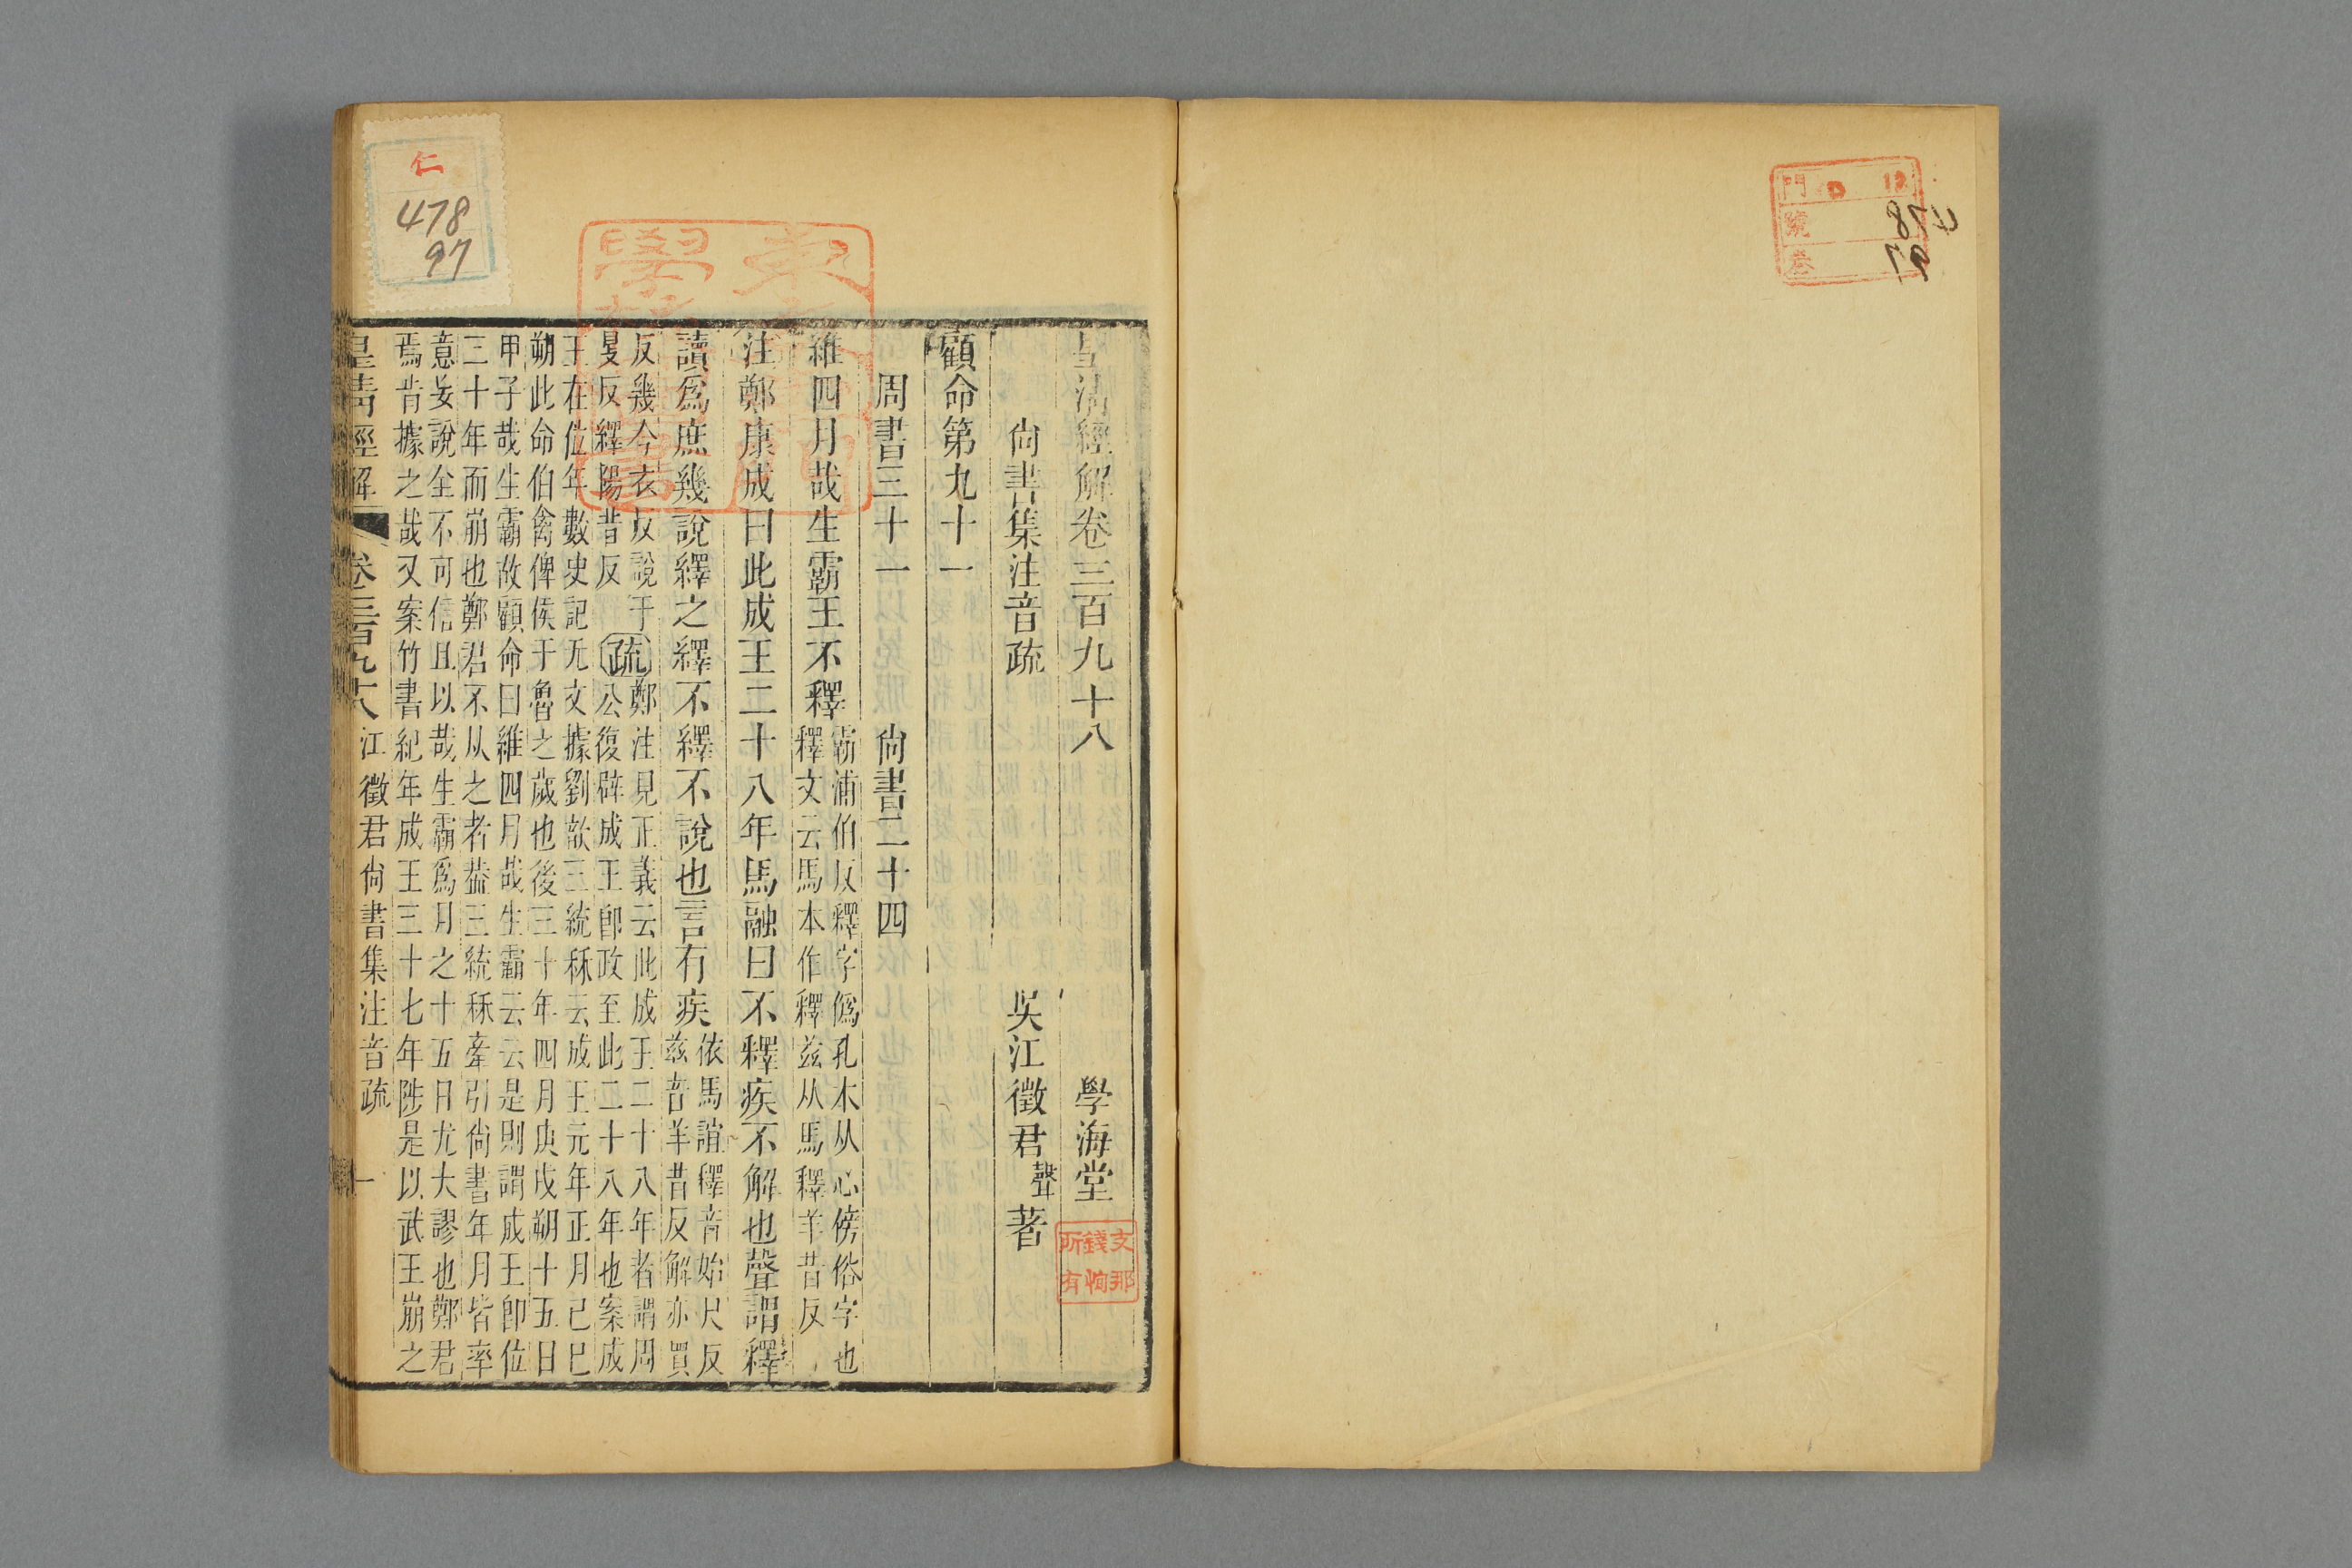 皇清經解卷三百九十八 學海堂
尙書集注音疏 吳江徵君聲著
顧命第九十一
周書三十一 尙書二十四
維四月哉生霸王不釋
霸浦伯反釋字僞孔本从心傍俗字也
釋文云馬本作釋茲从馬釋羊昔反
注鄭康成曰此成王二十八年馬融曰不釋疾不解也聲謂釋
讀爲庶幾說繹之繹不繹不說也言有疾
依馬誼釋音始尺反
茲音羊昔反解亦買
反幾今衣反說于
夏反繹陽昔反
疏
鄭注見正義云此成王二十八年者謂周
公復辟成王卽政至此二十八年也案成
王在位年數史記无文據劉歆三統秝云成王元年正月己巳
朔此命伯禽俾侯于魯之歲也後三十年四月庚戌朔十五日
甲子哉生霸故顧命曰維四月哉生霸云云是則謂成王卽位
三十年而崩也鄭君不从之者葢三統秝牽引尙書年月皆率
意妄說全不可信且以哉生霸爲月之十五日尤大謬也鄭君
焉肯據之哉又案竹書紀年成王三十七年陟是以武王崩之
皇清經解 卷三百九十八 江徵君尙書集注音疏 一
仁
478
97
支那
錢恂
所有
門
號
卷